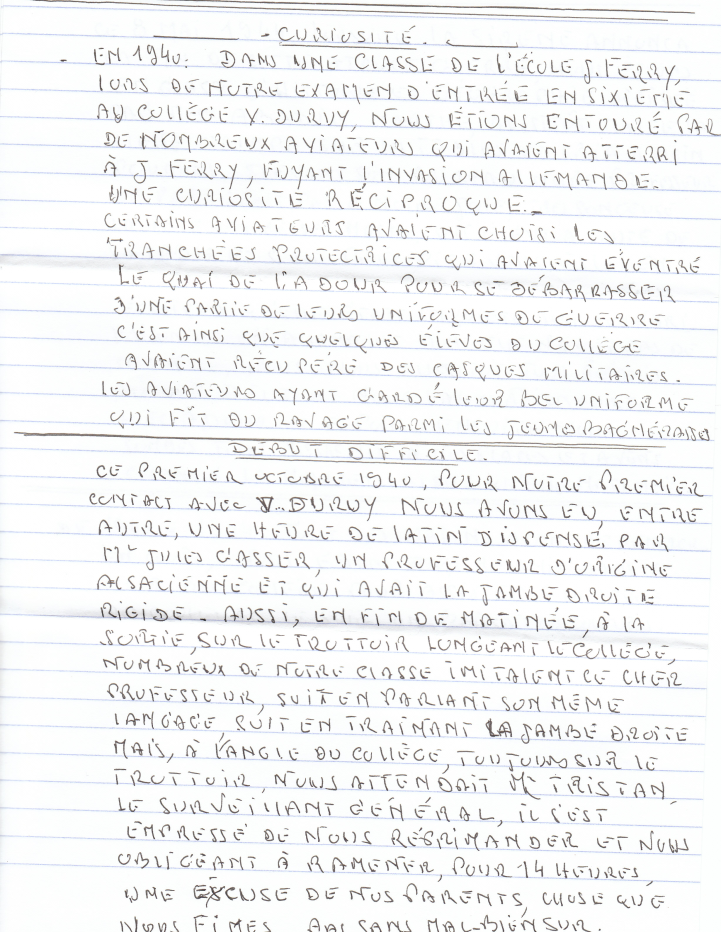 - CURIOSITÉ.
- EN 1940. DANS UNE CLASSE DE L'ÉCOLE J. FERRY,
LORS DE NOTRE EXAMEN D'ENTRÉE EN SIXIÈME
AU COLLÈGE V. DURUY, NOUS ÉTIONS ENTOURÉ PAR
DE NOMBREUX AVIATEURS QUI AVAIENT ATTERRI
À J. FERRY, FUYANT L'INVASION ALLEMANDE.
UNE CURIOSITÉ RÉCIPROQUE.
CERTAINS AVIATEURS AVAIENT CHOISI LES
TRANCHÉES PROTECTRICES QUI AVAIENT ÉVENTRÉ
LE QUAI DE L'ADOUR POUR SE DÉBARRASSER
D'UNE PARTIE DE LEURS UNIFORMES DE GUERRE
C'EST AINSI QUE QUELQUES ÉLÈVES DU COLLÈGE
AVAIENT RÉCUPÉRÉ DES CASQUES MILITAIRES.
LES AVIATEURS AYANT GARDÉ LEUR BEL UNIFORME
QUI FIT DU RAVAGE PARMI LES JEUNES BAGNÉRAISES
DÉBUT DIFFICILE.
CE PREMIER OCTOBRE 1940, POUR NOTRE PREMIER
CONTACT AVEC V. DURUY NOUS AVONS EU, ENTRE
AUTRE, UNE HEURE DE LATIN DISPENSÉ, PAR
Mr JULES GASSER, UN PROFESSEUR D'ORIGINE
ALSACIENNE ET QUI AVAIT LA JAMBE DROITE
RIGIDE. AUSSI, EN FIN DE MATINÉE, À LA
SORTIE, SUR LE TROTTOIR LONGEANT LE COLLÈGE,
NOMBREUX DE NOTRE CLASSE IMITAIENT CE CHER
PROFESSEUR, SOIT EN PARLANT SON MÊME
LANGAGE SOIT EN TRAÎNANT LA JAMBE DROITE
MAIS, À L'ANGLE DU COLLÈGE, TOUJOURS SUR LE
TROTTOIR, NOUS ATTENDAIT Mr TRISTAN,
LE SURVEILLANT GÉNÉRAL, IL S'EST
EMPRESSÉ DE NOUS RÉPRIMANDER ET NOUS
OBLIGEANT À RAMENER, POUR 14 HEURES,
UNE EXCUSE DE NOS PARENTS, CHOSE QUE
NOUS FÎMES SANS MAL-BIEN SUR.